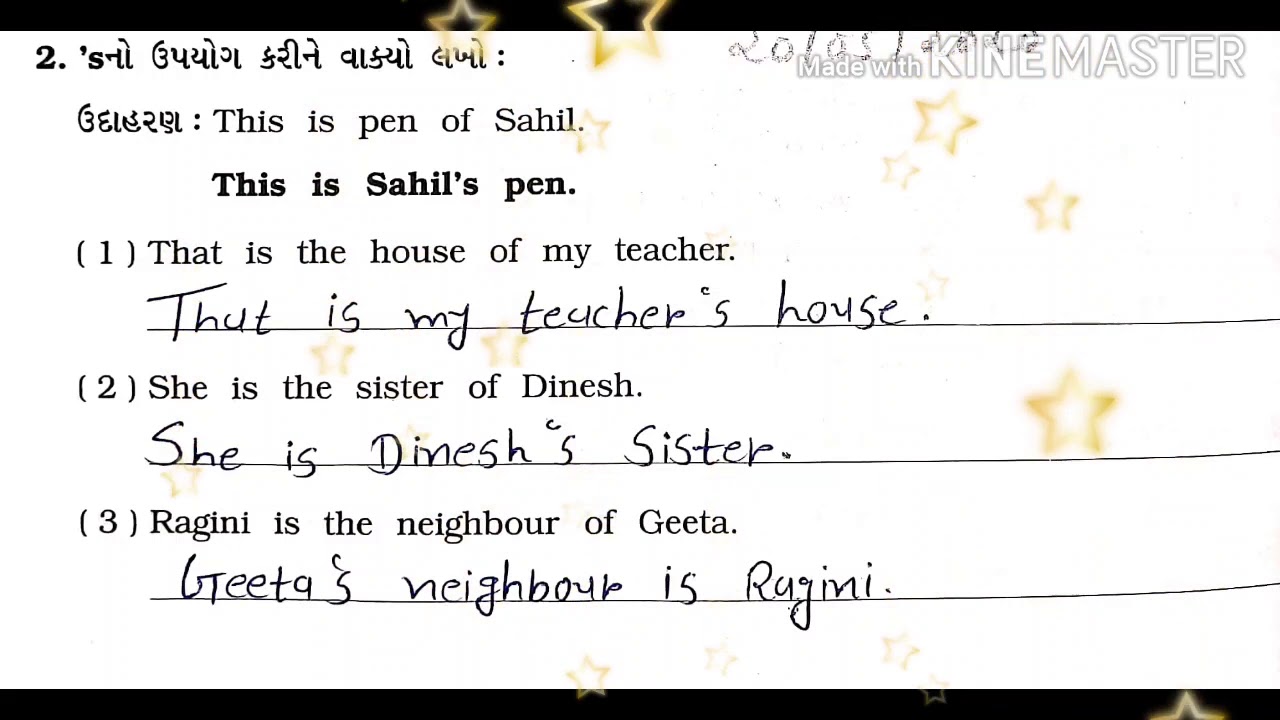 Made with KINEMASTER
2. 'sનો ઉપયોગ કરીને વાક્યો લખો :
ઉદાહરણ : This is pen of Sahil.
This is Sahil's pen.
( 1 ) That is the house of my teacher.
That is my teacher's house.
( 2 ) She is the sister of Dinesh.
She is Dinesh's Sister.
( 3 ) Ragini is the neighbour of Geeta.
Geeta's neighbour is Ragini.